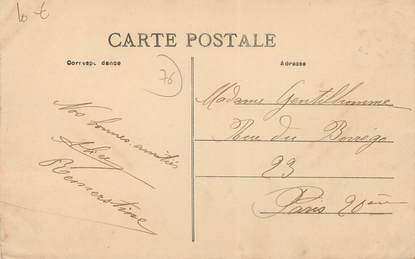 10 €
CARTE POSTALE
Correspondance
Adresse
76
Nos bonnes amitiés
Madame Gentilhomme
Rue du Borrégo
23
Paris 20ème